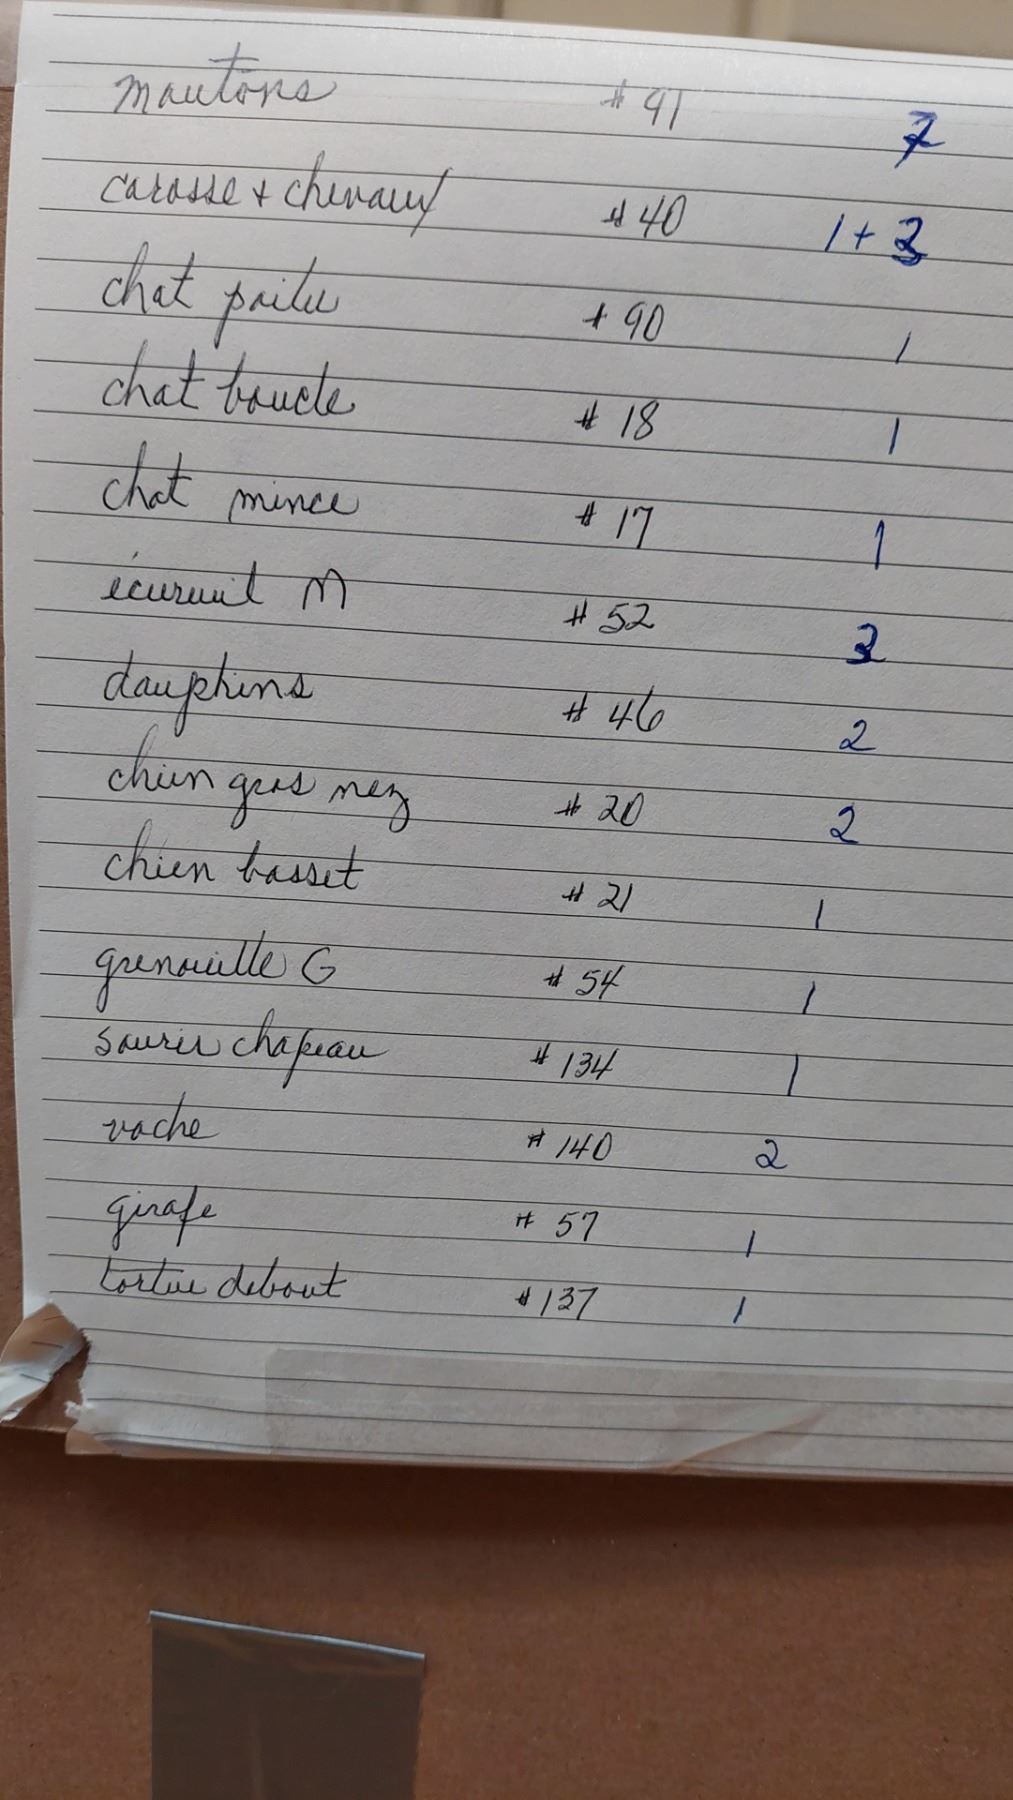 moutons # 91 7
carosse + chevaux # 40 1 + 3
chat poilu # 90 1
chat boucle # 18 1
chat mince # 17 1
écureuil M # 52 3
dauphins # 46 2
chien gros nez # 20 2
chien basset # 21 1
grenouille G # 54 1
souris chapeau # 134 1
vache # 140 2
girafe # 57 1
tortue debout # 137 1